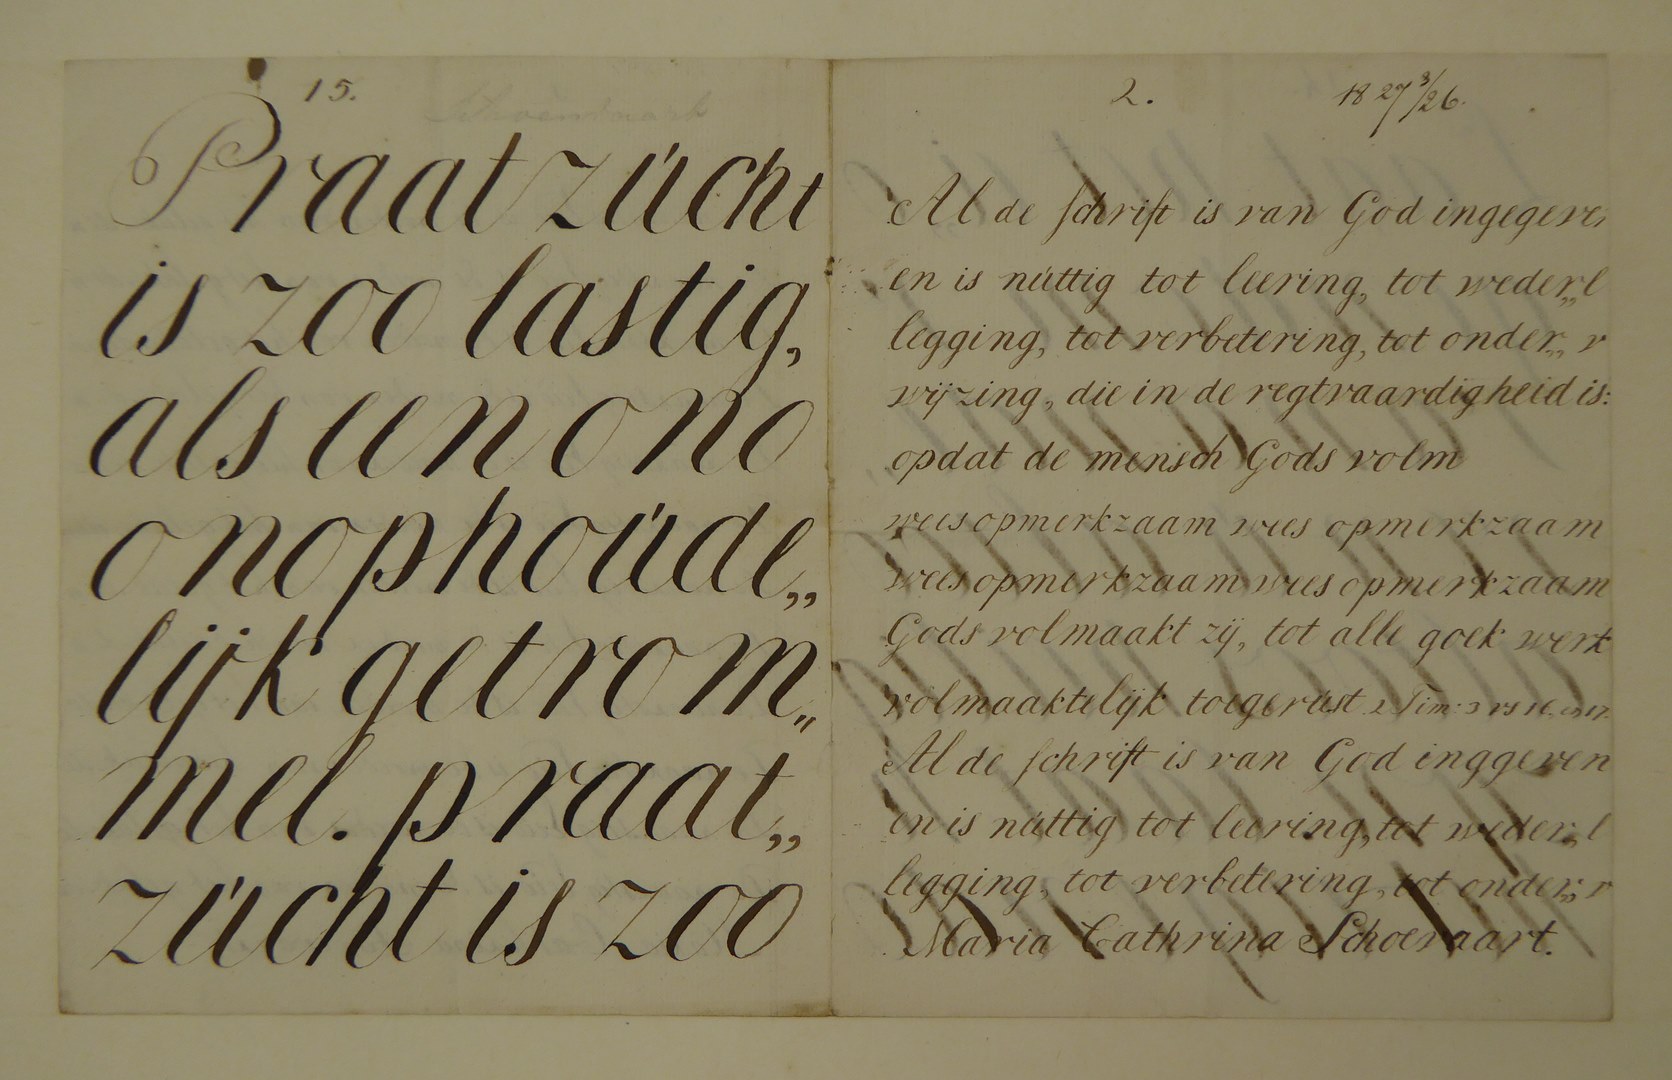 15.
Praatzúcht
is zoo lastig,
als een ono
onophoúde„
lijk getrom„
mel. praat„
zúcht is zoo
2. 1827 3/26.
Al de schrift is van God ingegeven
en is núttig tot leering, tot weder„l
legging, tot verbetering, tot onder„ v
wijzing, die in de regtvaardigheid is:
opdat de mensch Gods volm
wees opmerkzaam wees opmerkzaam
wees opmerkzaam wees opmerkzaam
Gods volmaakt zij, tot alle goek werk
volmaaktelijk toegerúst 2 Tim: 3 vs 16. en 17.
Al de schrift is van God inggeven
en is núttig tot leering, tot weder„l
legging, tot verbetering, tot onder„ v
Maria Cathrina Schoevaart.